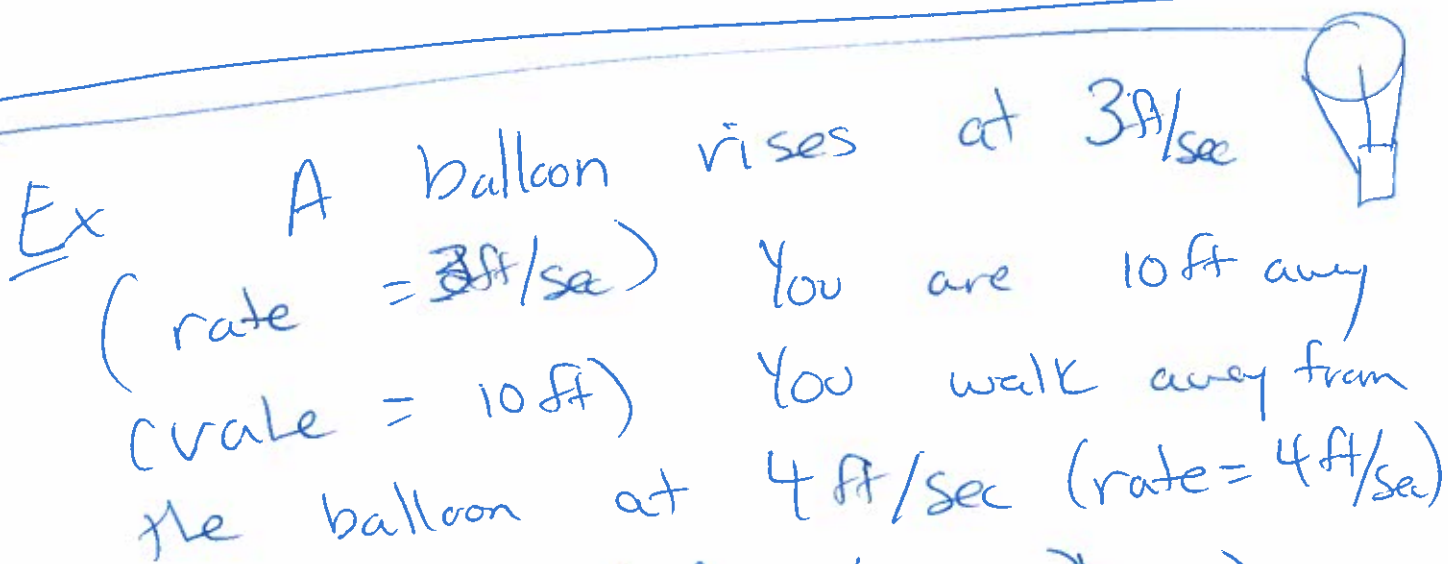 Ex A balloon rises at 3ft/sec
(rate = 3ft/sec) You are 10 ft away
(value = 10 ft) You walk away from
the balloon at 4 ft/sec (rate = 4 ft/sec)